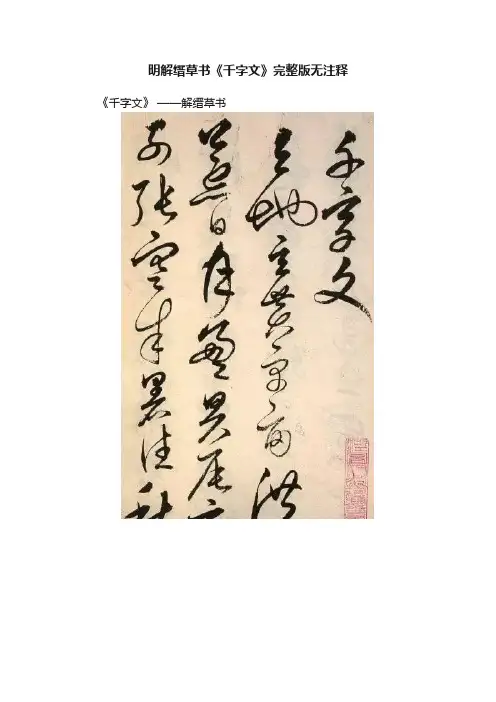 明解缙草书《千字文》完整版无注释
《千字文》 ——解缙草书
千字文
天地玄黄宇宙洪
荒日月盈昃辰宿
列張寒来暑往秋